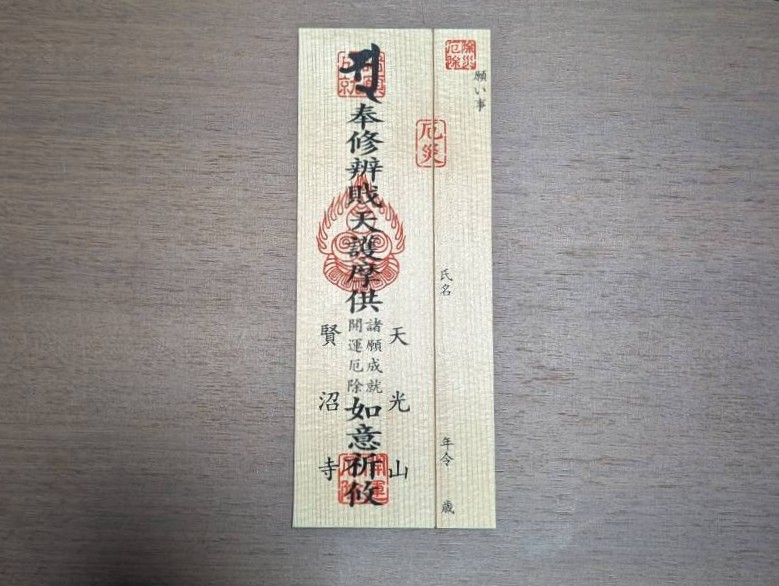 願い事
厄災
氏名
年令 歳
奉修辨戝天護摩供
諸願成就
開運厄除
如意祈攸
天光山
賢沼寺